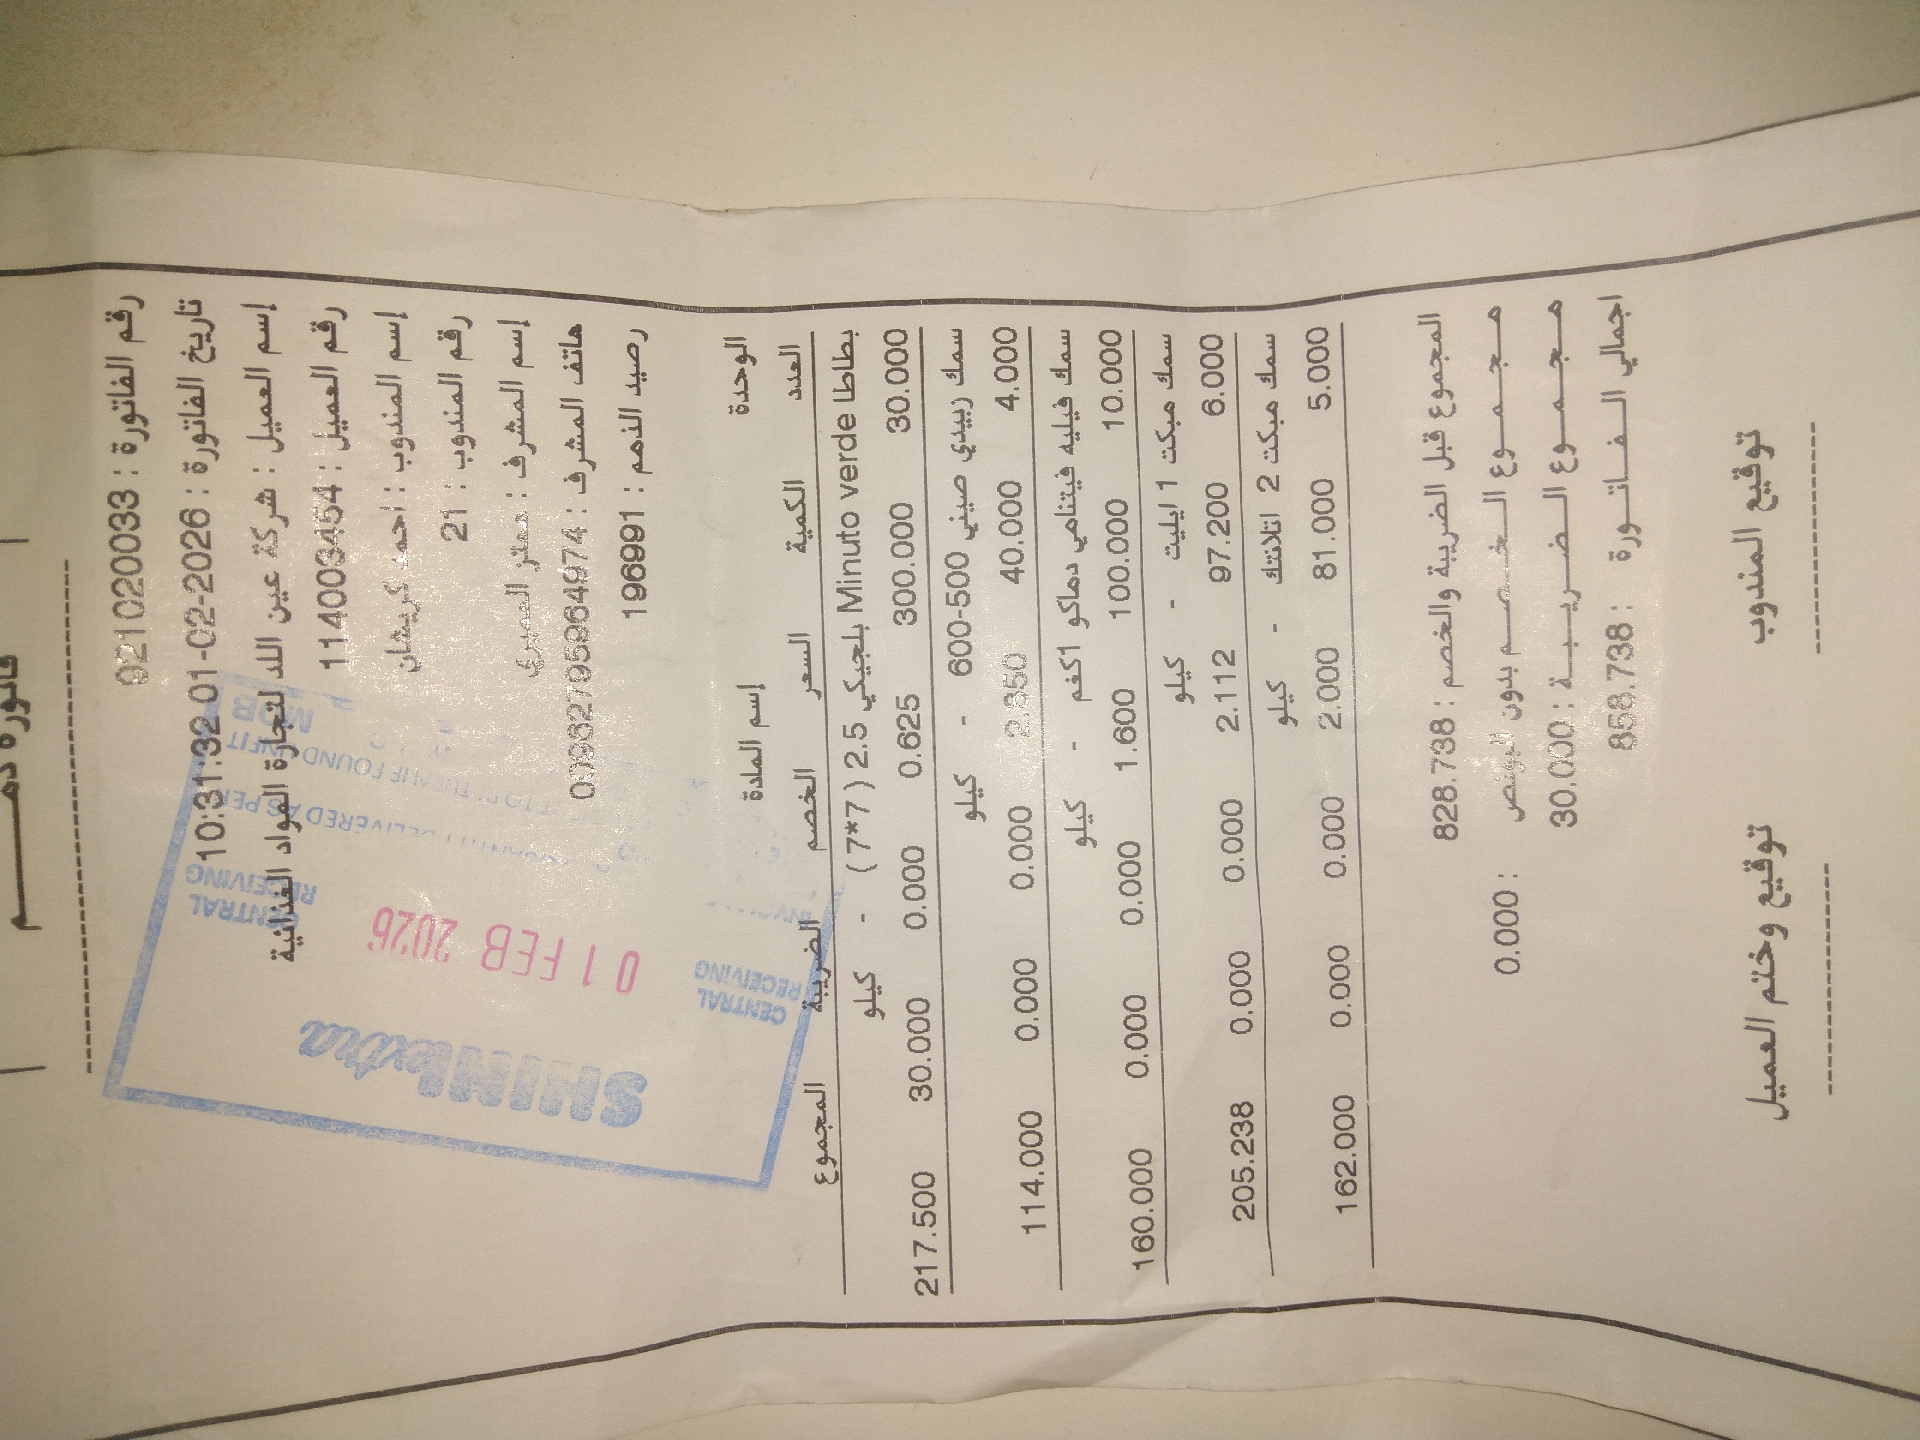 فاتورة ذمـــــــم
رقم الفاتورة : 92102００33
تاريخ الفاتورة : 01-02-2026 10:31:32
إسم العميل : شركة عين اللد لتجارة المواد الغذائية
رقم العميل : 114003454
إسم المندوب : احمد كريشان
رقم المندوب : 21
إسم المشرف : معتز العميري
هاتف المشرف : 00962795964974
رصيد الذمم : 196991
CENTRAL RECEIVING
01 FEB 2026
CENTRAL RECEIVING
الوحدة إسم المادة
العدد الكمية السعر الخصم الضريبة المجموع
بطاطا Minuto verde بلجيكي 2.5 ( 7*7 ) - كيلو
30.000 300.000 0.625 0.000 30.000 217.500
سمك زبيدي صيني 500-600 - كيلو
4.000 40.000 2.850 0.000 0.000 114.000
سمك فيليه فيتنامي دماكو 1كغم - كيلو
10.000 100.000 1.600 0.000 0.000 160.000
سمك هبكت 1 ايليت - كيلو
6.000 97.200 2.112 0.000 0.000 205.238
سمك هبكت 2 اتلانتك - كيلو
5.000 81.000 2.000 0.000 0.000 162.000
المجموع قبل الضريبة والخصم : 828.738
مـجـمـوع الـخـصـم بدون البونص : 0.000
مـجـمـوع الـضـريـبـة : 30.000
اجمالي الـفـاتـورة : 858.738
توقيع المندوب توقيع وختم العميل